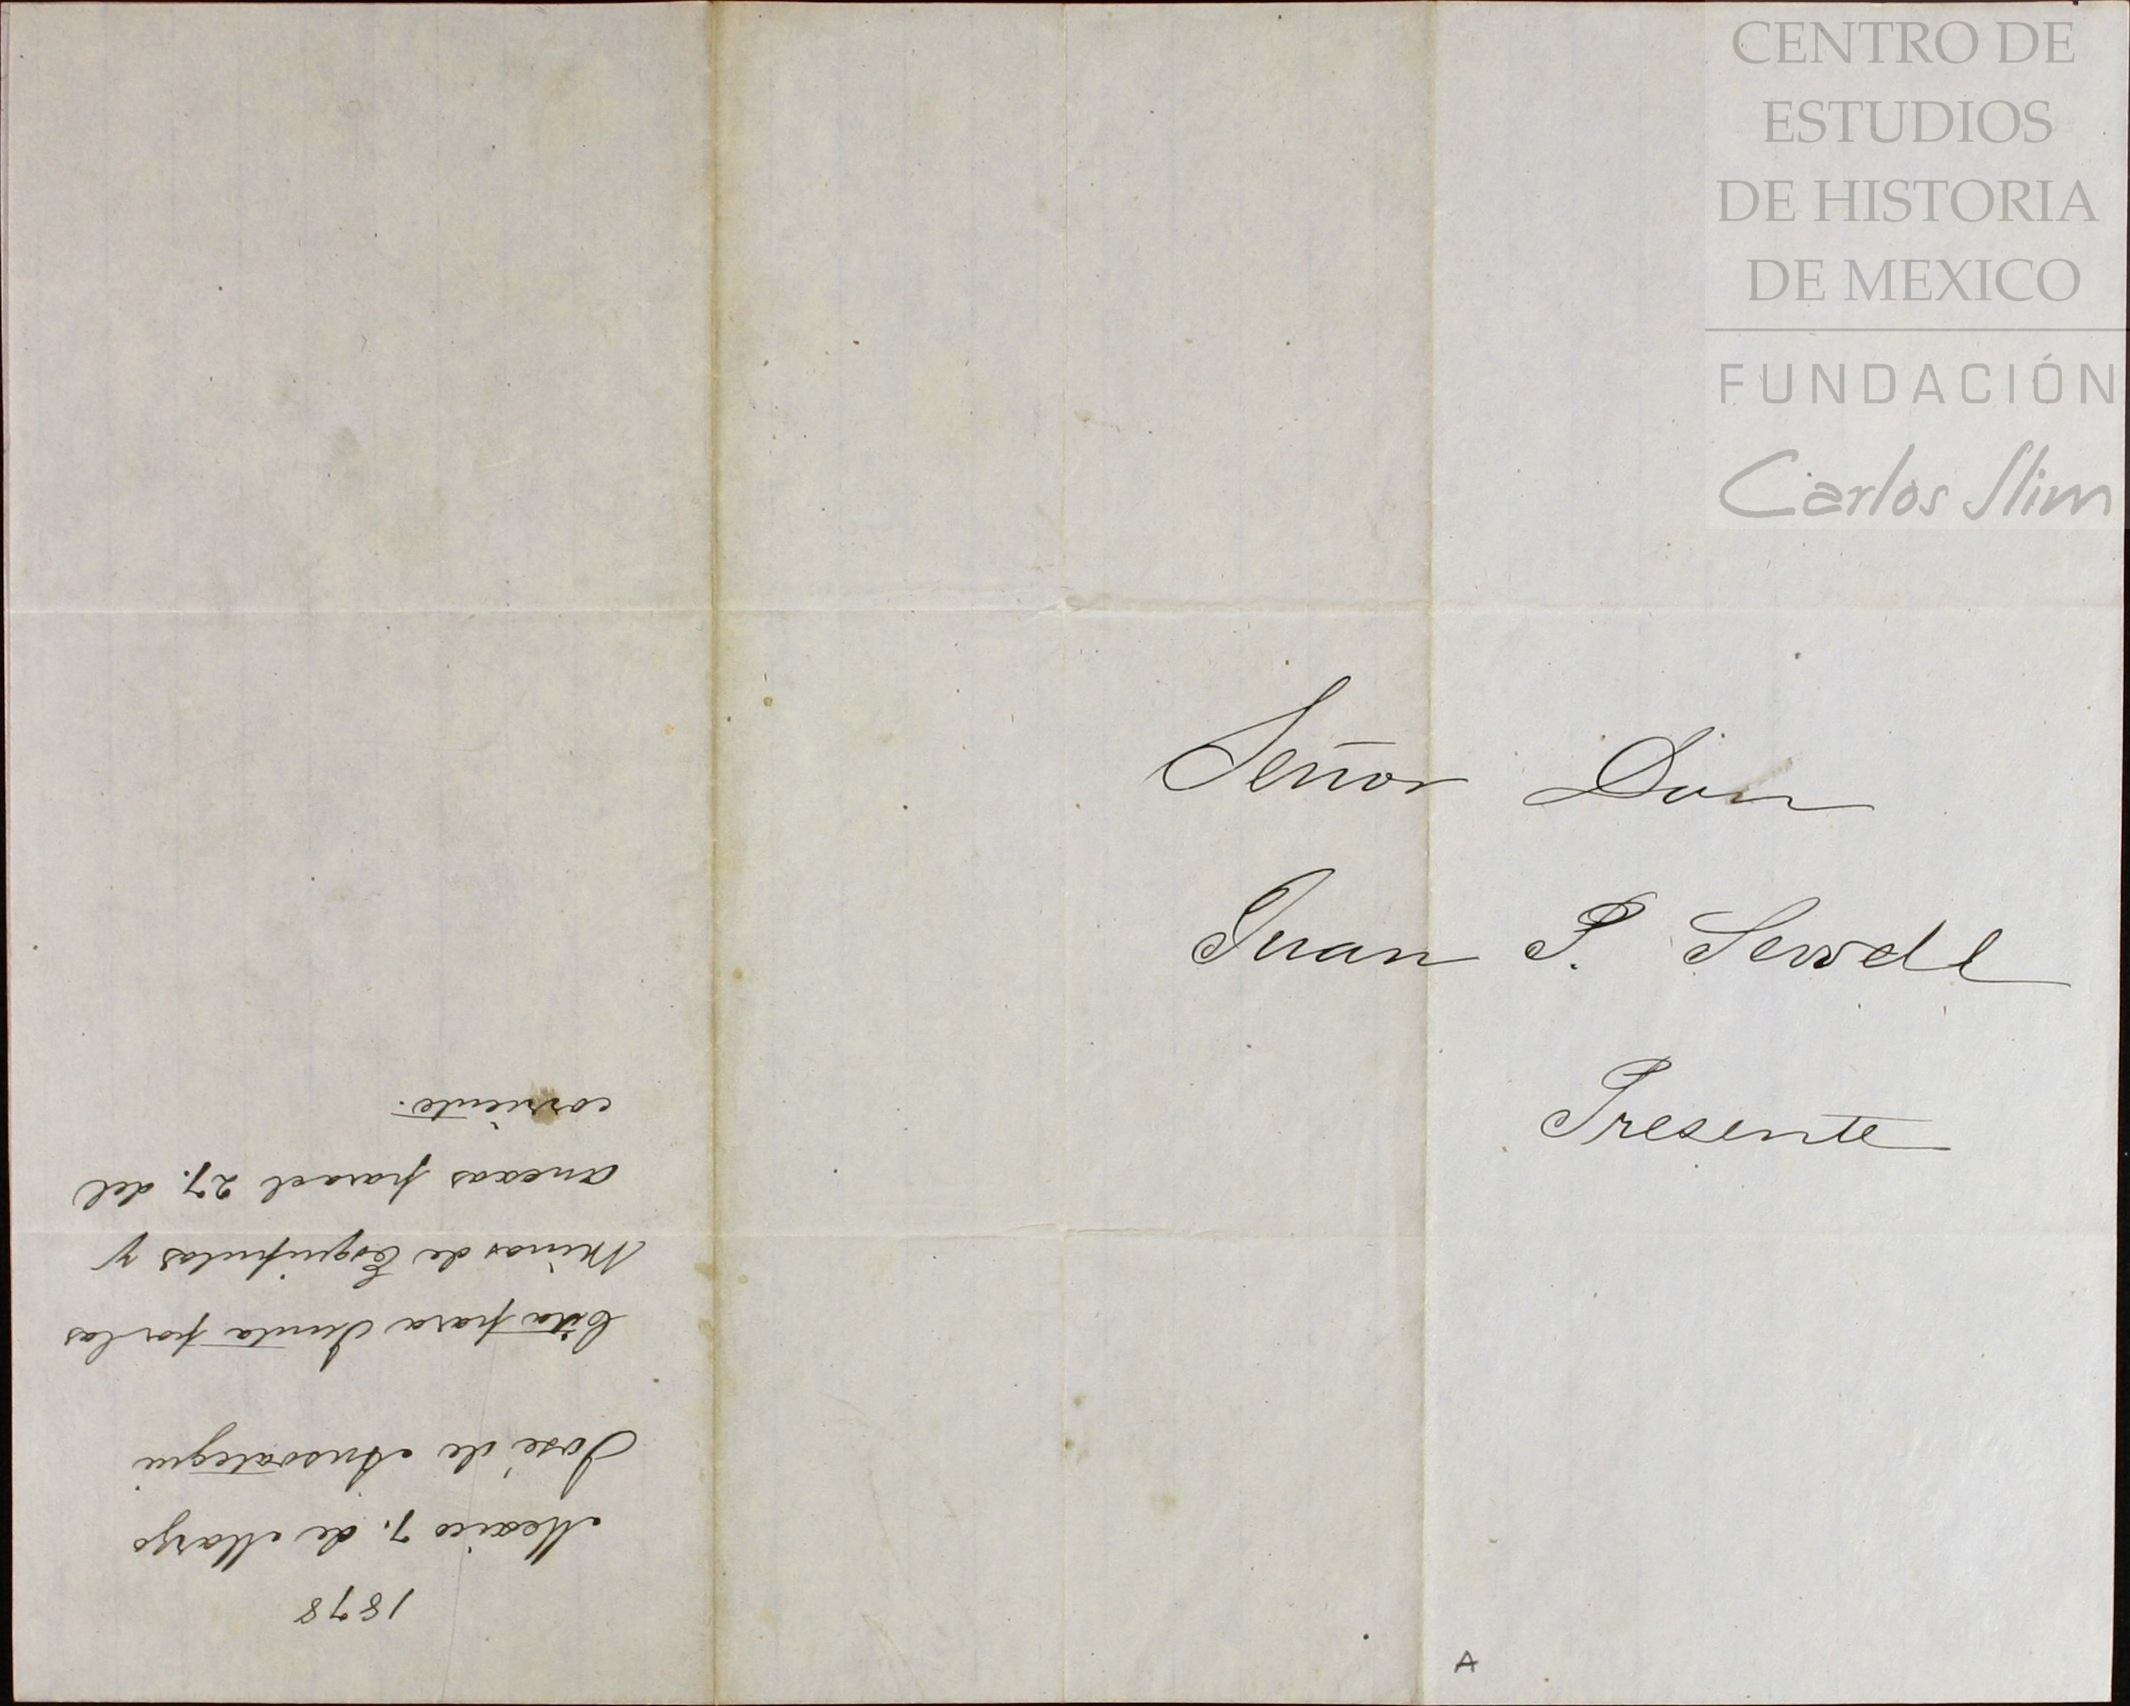 CENTRO DE
ESTUDIOS
DE HISTORIA
DE MEXICO
FUNDACIÓN
Carlos Slim
Señor Don
Juan P. Sewell
Presente
A
1878
Mexico 7. de Marzo
José de Ansoategui
Cita para Junta por las
Minas de Esquipulas y
anexas para el 27. del
corriente.